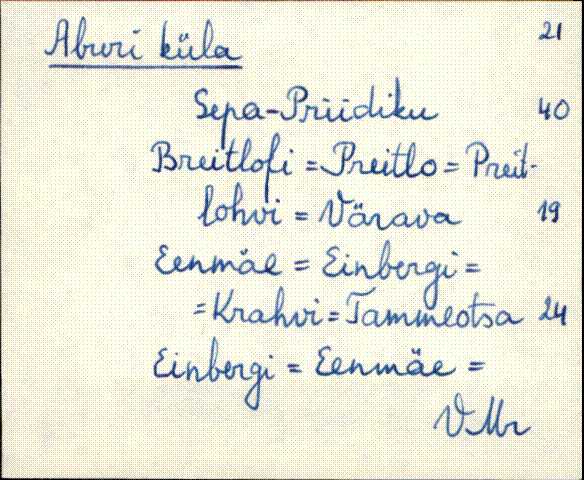 Abruri küla 21
Sepa-Priidiku 40
Breitlofi = Preitlo = Preit-
lohvi = Värava 19
Eenmäe = Einbergi =
= Krahvi = Tammeotsa 24
Einbergi = Eenmäe =
VMr